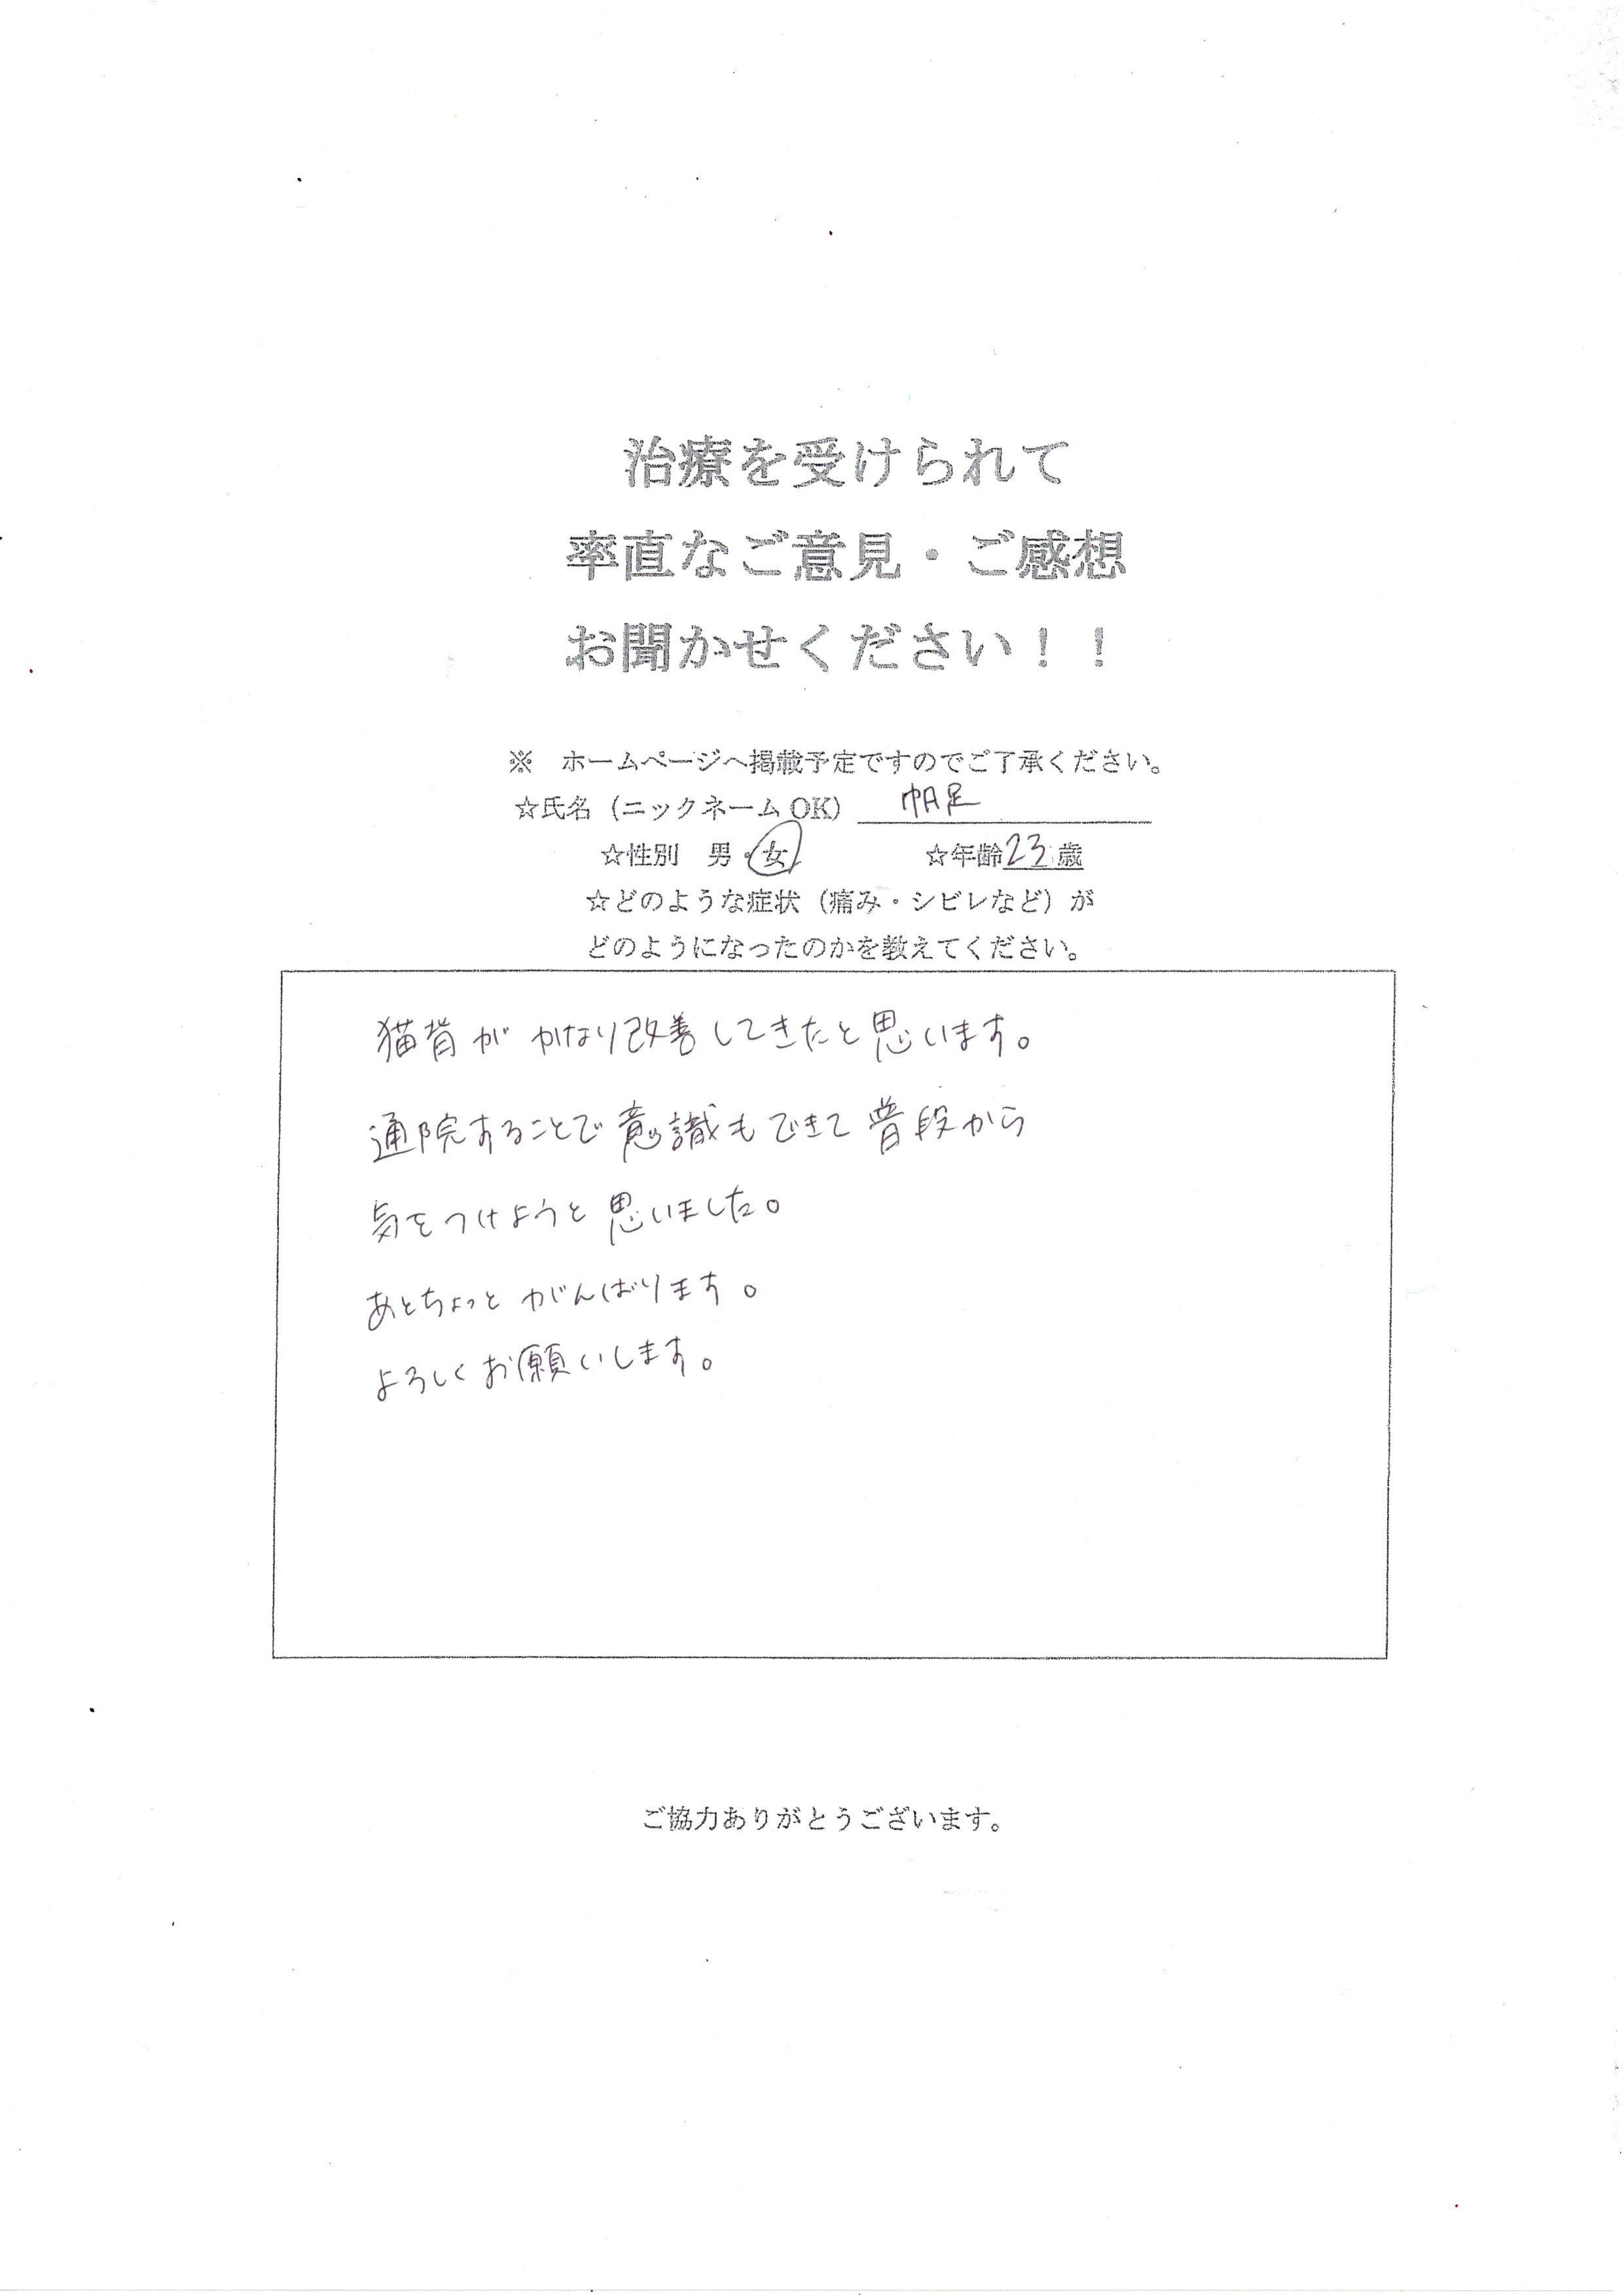 治療を受けられて
率直なご意見・ご感想
お聞かせください！！
※　ホームページへ掲載予定ですのでご了承ください。
☆氏名（ニックネームOK）帆足
☆性別　男・女　☆年齢23歳
☆どのような症状（痛み・シビレなど）が
どのようになったのかを教えてください。
猫背が かなり改善してきたと思います。
通院することで意識もできて普段から
気をつけようと思いました。
あとちょっと がんばります。
よろしくお願いします。
ご協力ありがとうございます。